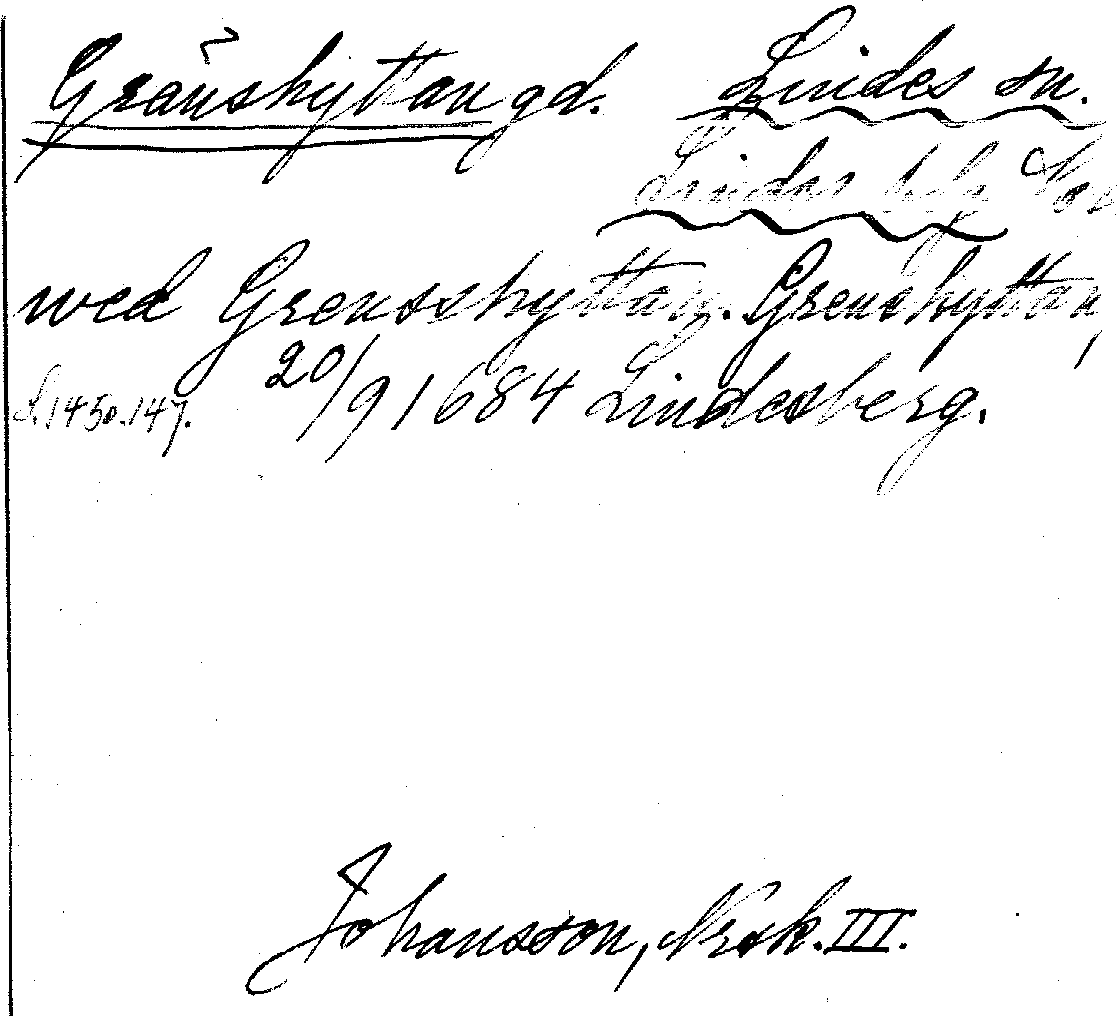 Gränshyttan gd. Lindes sn.
Lindes bslg
wed Grensshyttan. Grenshyttan,
L. 1450.147. 20/9 1684 Lindesberg.
Johansson, Nrsk. III.